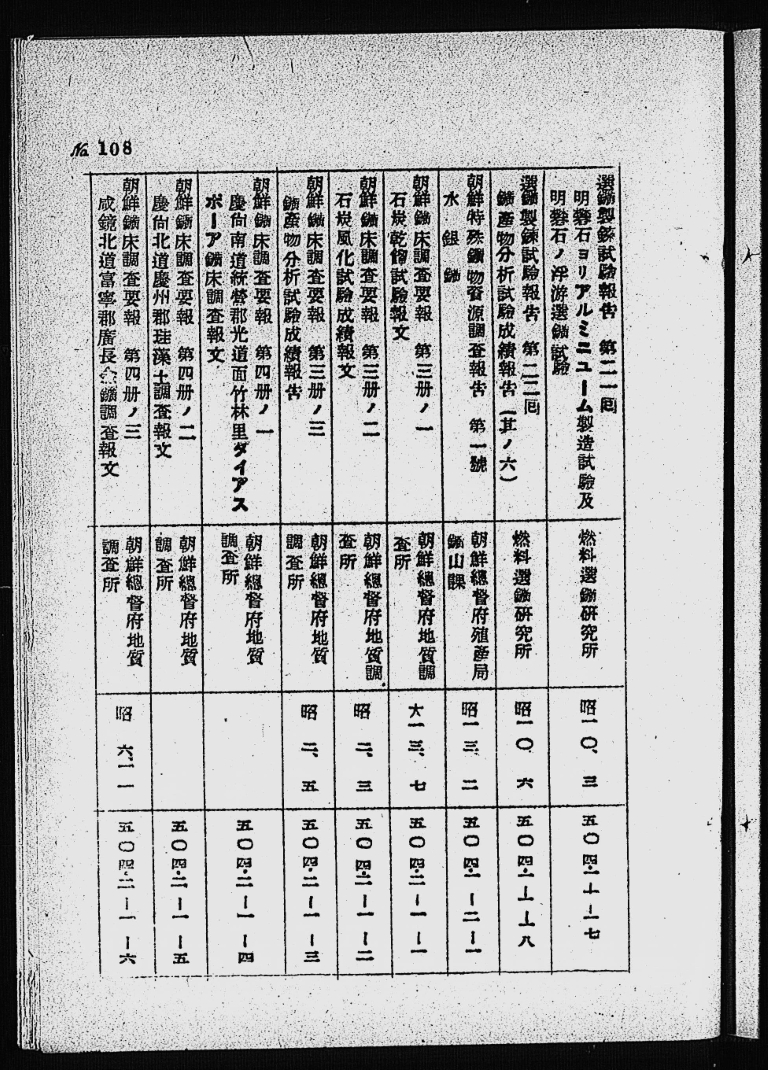 No. 108
選鑛製錬試驗報告 第二一囘
明礬石ヨリアルミニユーム製造試驗及
明礬石ノ浮游選鑛試驗
燃料選鑛研究所
昭一〇、三
五〇四・一―一―一七
選鑛製錬試驗報告 第二二囘
鑛産物分析試驗成績報告(其ノ六)
燃料選鑛研究所
昭一〇 六
五〇四・一―一―一八
朝鮮特殊鑛物資源調査報告 第一號
水銀鑛
朝鮮總督府殖産局
鑛山課
昭一三、二
五〇四・一―二―一
朝鮮鑛床調査要報 第三册ノ一
石炭乾餾試驗報文
朝鮮總督府地質調
査所
大一三、七
五〇四・二―一―一
朝鮮鑛床調査要報 第三册ノ二
石炭風化試驗成績報文
朝鮮總督府地質調
査所
昭 二、三
五〇四・二―一―二
朝鮮鑛床調査要報 第三册ノ三
鑛産物分析試驗成績報告
朝鮮總督府地質
調査所
昭 二、五
五〇四・二―一―三
朝鮮鑛床調査要報 第四册ノ一
慶尚南道統營郡光道面竹林里ダイアス
ポーア鑛床調査報文
朝鮮總督府地質
調査所
五〇四・二―一―四
朝鮮鑛床調査要報 第四册ノ二
慶尚北道慶州郡珪藻土調査報文
朝鮮總督府地質
調査所
五〇四・二―一―五
朝鮮鑛床調査要報 第四册ノ三
咸鏡北道富寧郡廣長金鑛調査報文
朝鮮總督府地質
調査所
昭 六、一一
五〇四・二―一―六